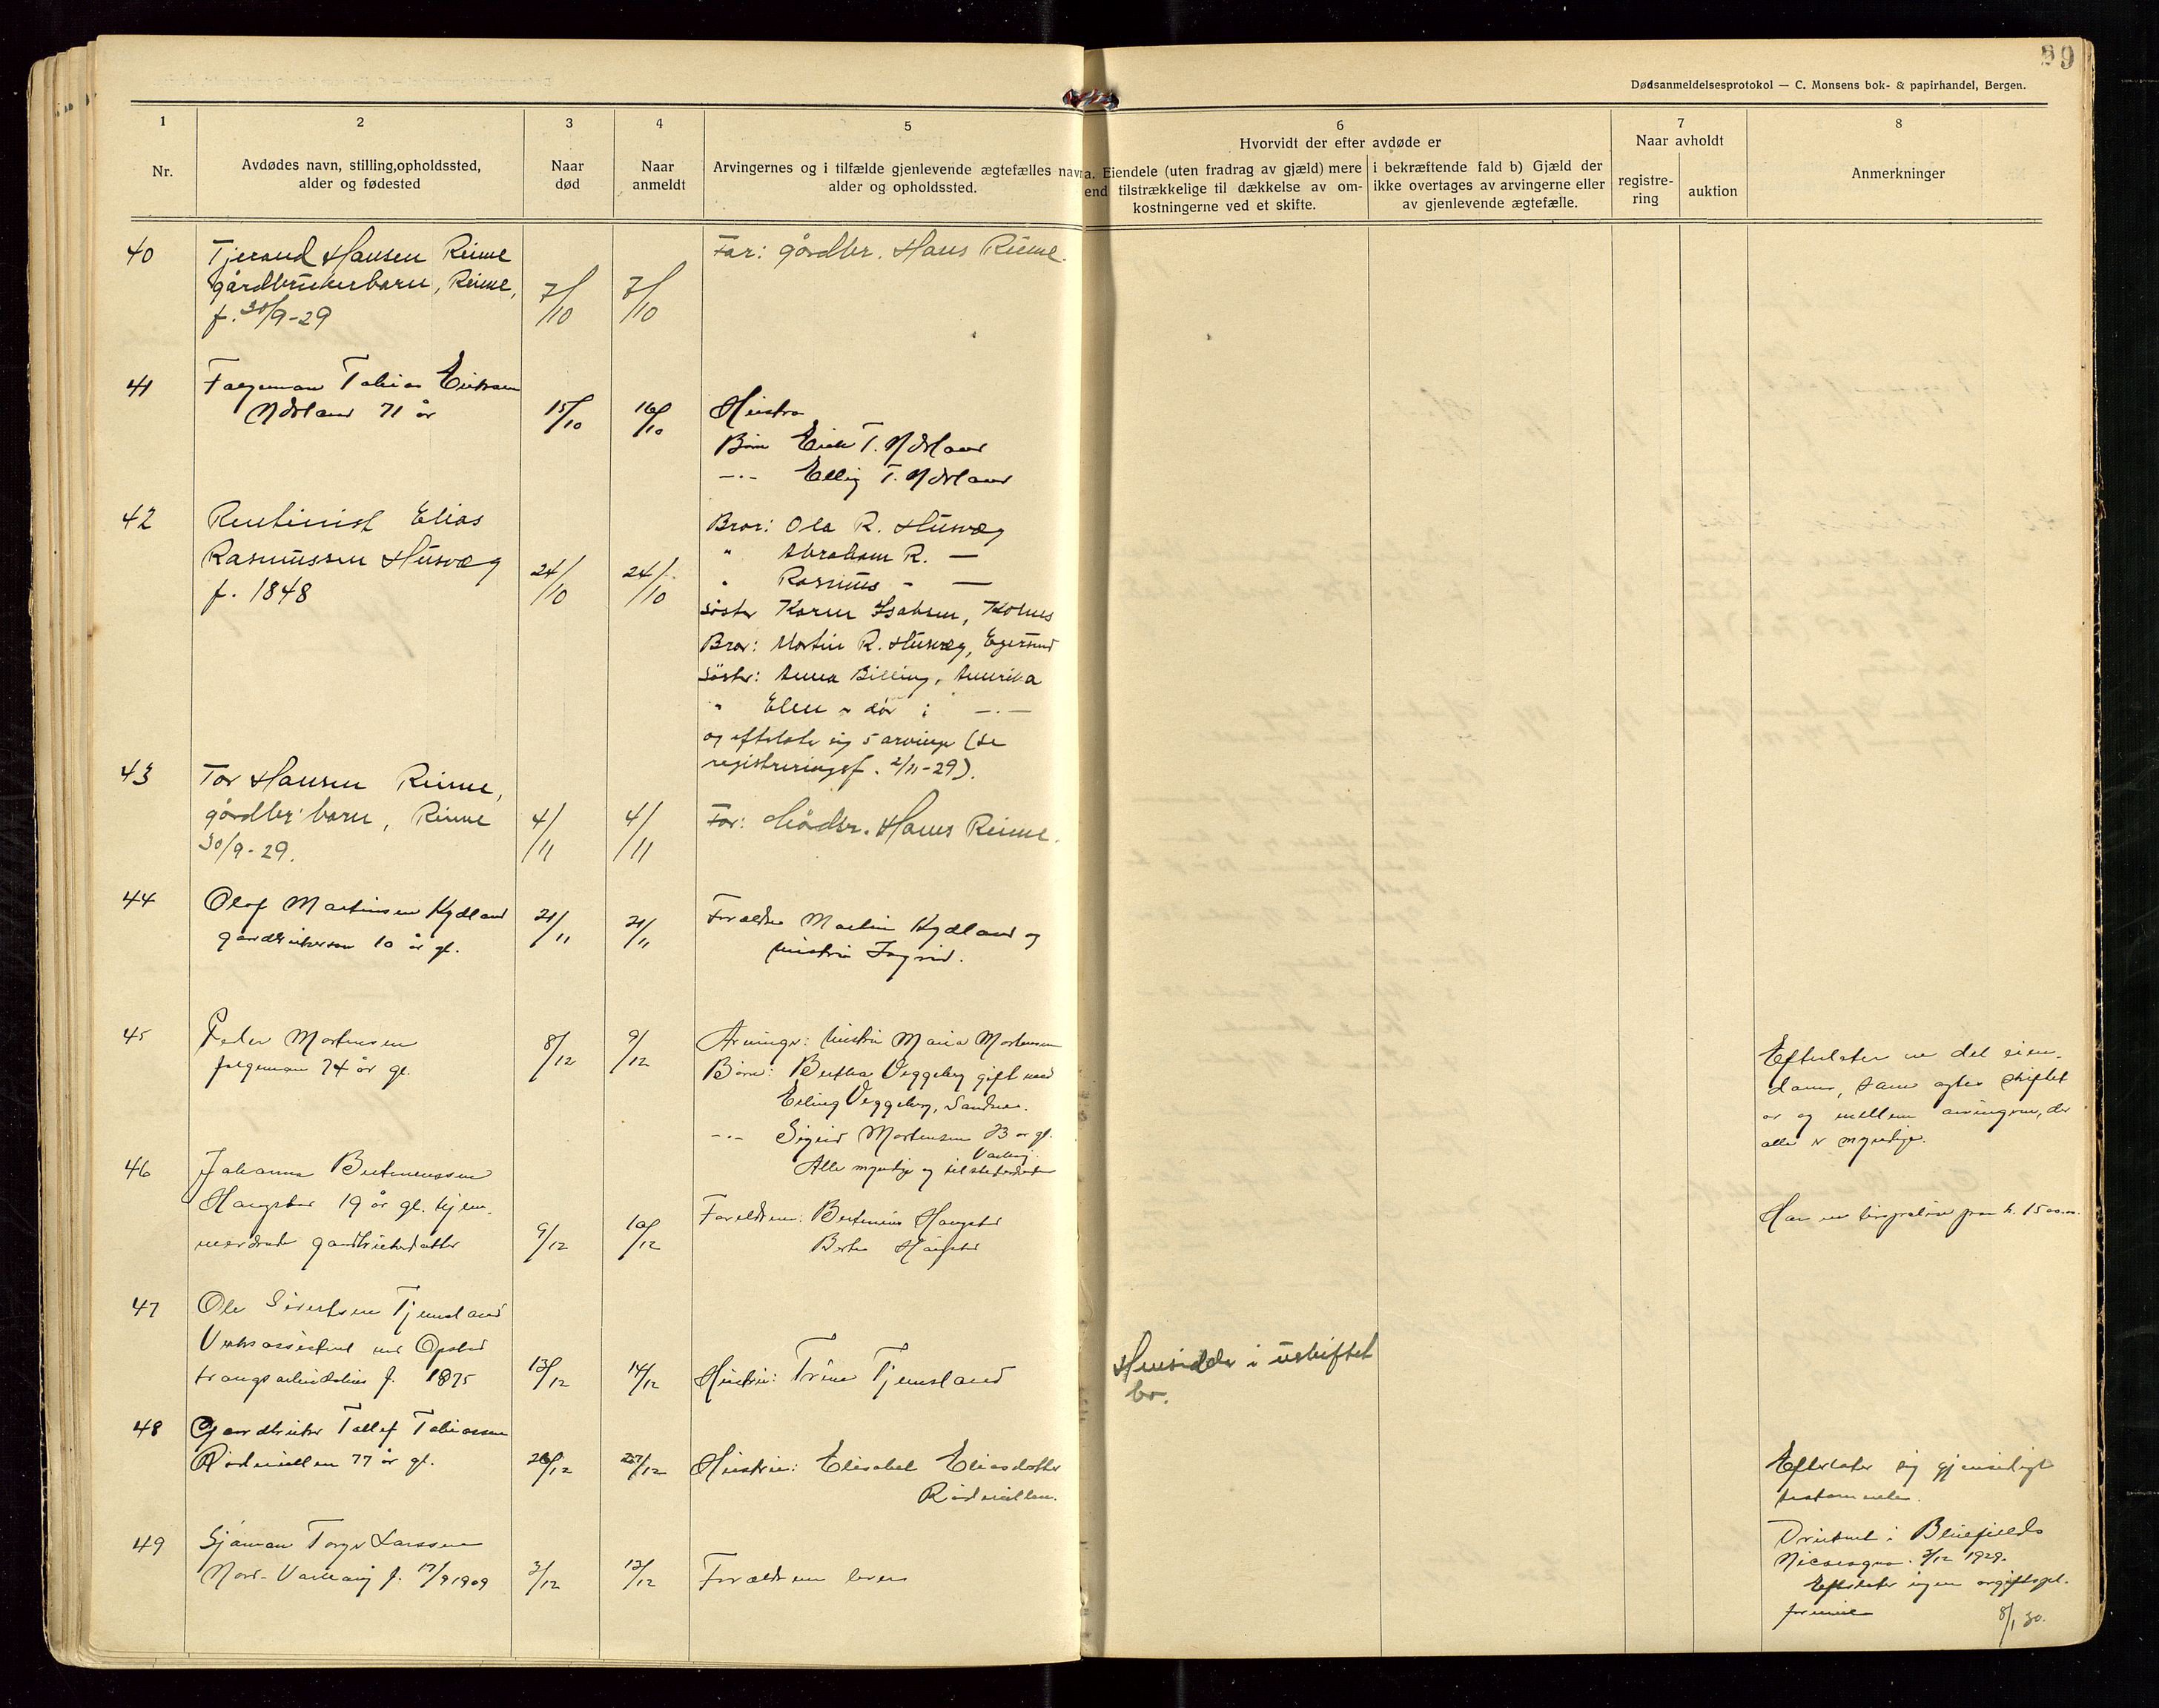 89
Dødsanmeldelsesprotokol — C. Monsens bok- & papirhandel, Bergen.
1
Nr.
2
Avdødes navn, stilling, opholdssted,
alder og fødested
3
Naar
død
4
Naar
anmeldt
5
Arvingernes og i tilfælde gjenlevende ægtefælles navn
alder og opholdssted.
6
Hvorvidt der efter avdøde er
a. Eiendele (uten fradrag av gjæld) mere
end tilstrækkelige til dækkelse av om-
kostningerne ved et skifte.
i bekræftende fald b) Gjæld der
ikke overtages av arvingerne eller
av gjenlevende ægtefælle.
7
Naar avholdt
registre-
ring
auktion
8
Anmerkninger
40
Tjerand Hansen Reime
gårdbrukerbarn, Reime,
f. 30/9-29
7/10
7/10
Far: gårdbr. Hans Reime.
41
Tobias
71 år
15/10
16/10
Hustru
Børn Eirik T.
-"- Ellig T.
42
Rentenist Elias
Rasmussen Husvæg
f. 1848
24/10
24/10
Bror: Ola R. Husvæg
" Abraham R. —
" Rasmus - —
Søster Karen Isaksen,
Bror: Martin R. Husvæg, Egersund
Søster: Anna Billing, Amerika
" Elen - dør i -"-
og efterlot sig 5 arvinge (se
registreringsf. 2/11-29).
43
Tor Hansen Reime,
gårdbr barn, Reime
30/9-29.
4/11
4/11
Far: Gårdbr. Hans Reime.
44
Olaf Martinsen Kydland
gaardbrukersøn 10 år gl.
21/11
21/11
Forældre Martin Kydland og
hustru Ingrid.
45
Peder Mortensen
74 år gl.
8/12
9/12
Arvinger: hustru Maria Mortensen
Børn: Bertha Veggeberg gift med
Erling Veggeberg, Sandnes.
-"- Sigrid Mortensen 33 år gl.
Varhaug.
Alle myndige og tilstedeværende
Efterlater en del eien-
dom, som agtes skiftet
av og mellem arvingene, der
alle er myndige.
46
Johanna Bertinussen
Haugstad 19 år gl. hjem-
værende gaardbrukerdatter
9/12
10/12
Forældrene: Bertinius Haugstad
Berta Haugstad
Har en livspolise paa k. 1500.00.
47
Ole Sivertsen Tjemsland
Verksassistent ved Opstad
tvangsarbeidshus f. 1875
13/12
14/12
Hustru: Trine Tjemsland
Hensidder i uskiftet
bo.
48
Gaardbruker Tollef Tobiassen
77 år gl.
26/12
27/12
Hustru: Elisabet Eliasdatter
Efterlater sig gjensidigt
testamente.
49
Sjömann Torger Larssen
Nord-Varhaug f. 17/9 1909
3/12
13/12
Forældrene lever
Druknet i Bluefields
Nicaragua. 3/12 1929.
Efterlater ingen avgiftspl.
formue
8/1 30.